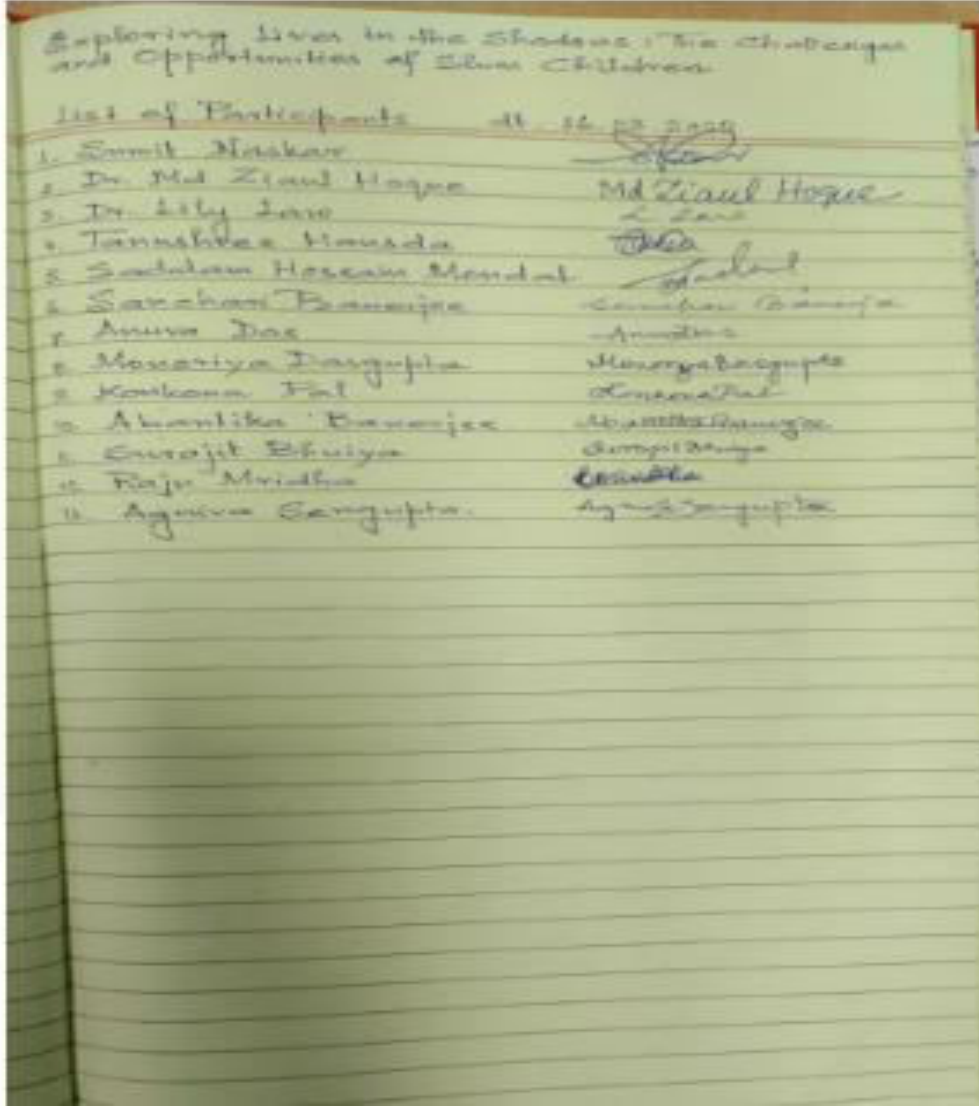 Exploring Lives in the Shadows: The Challenges
and Opportunities of Slum Children
List of Participants dt.
1. Sumit Naskar
2. Dr. Md Ziaul Hoque Md Ziaul Hoque
3. Dr. Lily Law L Law
4. Tanushree Hansda
5. Hossain Mondal
6. Sanchari Banerjee
7. Anuva Das
8. Dasgupta Dasgupta
9. Konkona Pal Konkona Pal
10. Abantika Banerjee Abantika Banerjee
11. Surojit Bhuiya
12. Raju Mridha
13. Agniva Sengupta. Sengupta